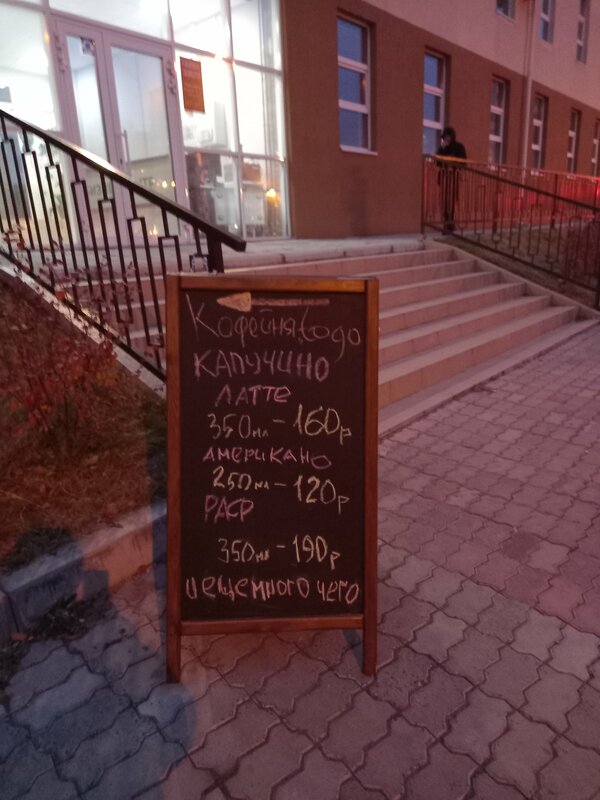 Кофейня,,todo
КАПУЧИНО
ЛАТТЕ
350мл-160р
АМЕРИКАНО
250мл-120р
РАФ
350мл-190р
и еще много чего